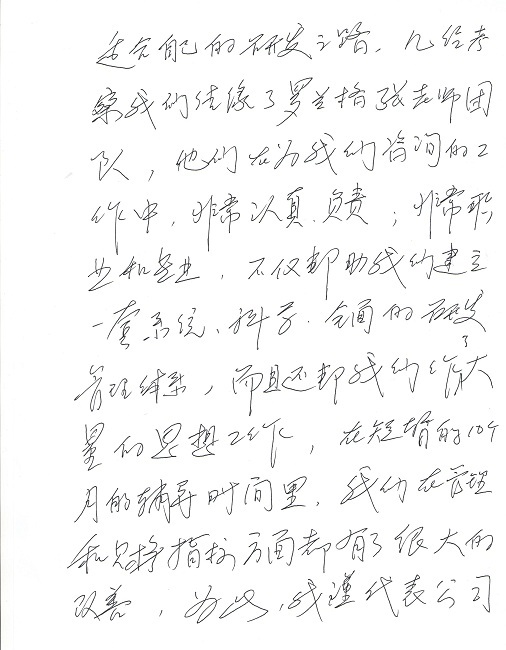 适合自己的研发之路。几经考
察我们结缘了罗兰格张老师团
队，他们在为我们咨询的工
作中，非常认真、负责；非常职
业和专业，不仅帮助我们建立
一套系统、科学、全面的研发
管理体系，而且还帮我们作了大
量的思想工作，在短暂的10个
月的辅导时间里，我们在管理
和指标方面都有了很大的
改善，为此，我谨代表公司